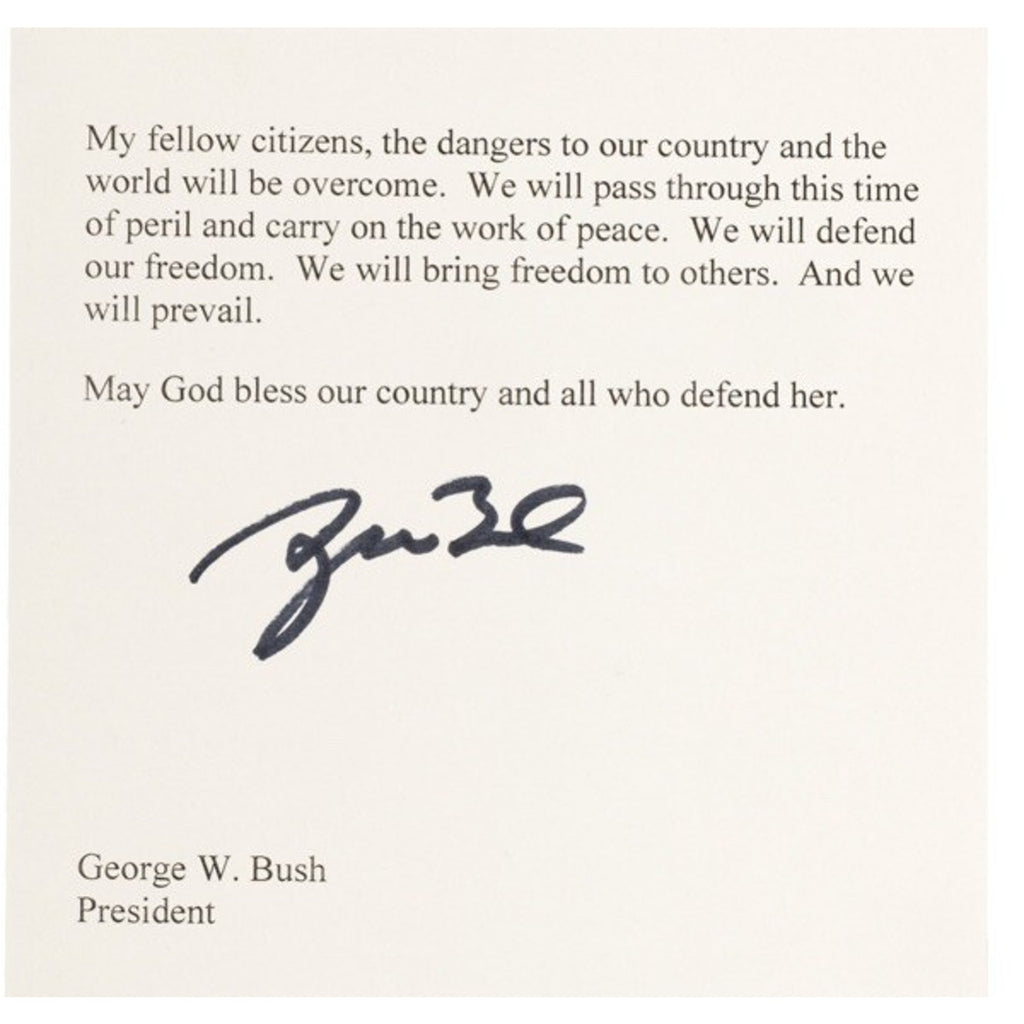 My fellow citizens, the dangers to our country and the
world will be overcome.  We will pass through this time
of peril and carry on the work of peace.  We will defend
our freedom.  We will bring freedom to others.  And we
will prevail.
May God bless our country and all who defend her.
George W. Bush
President